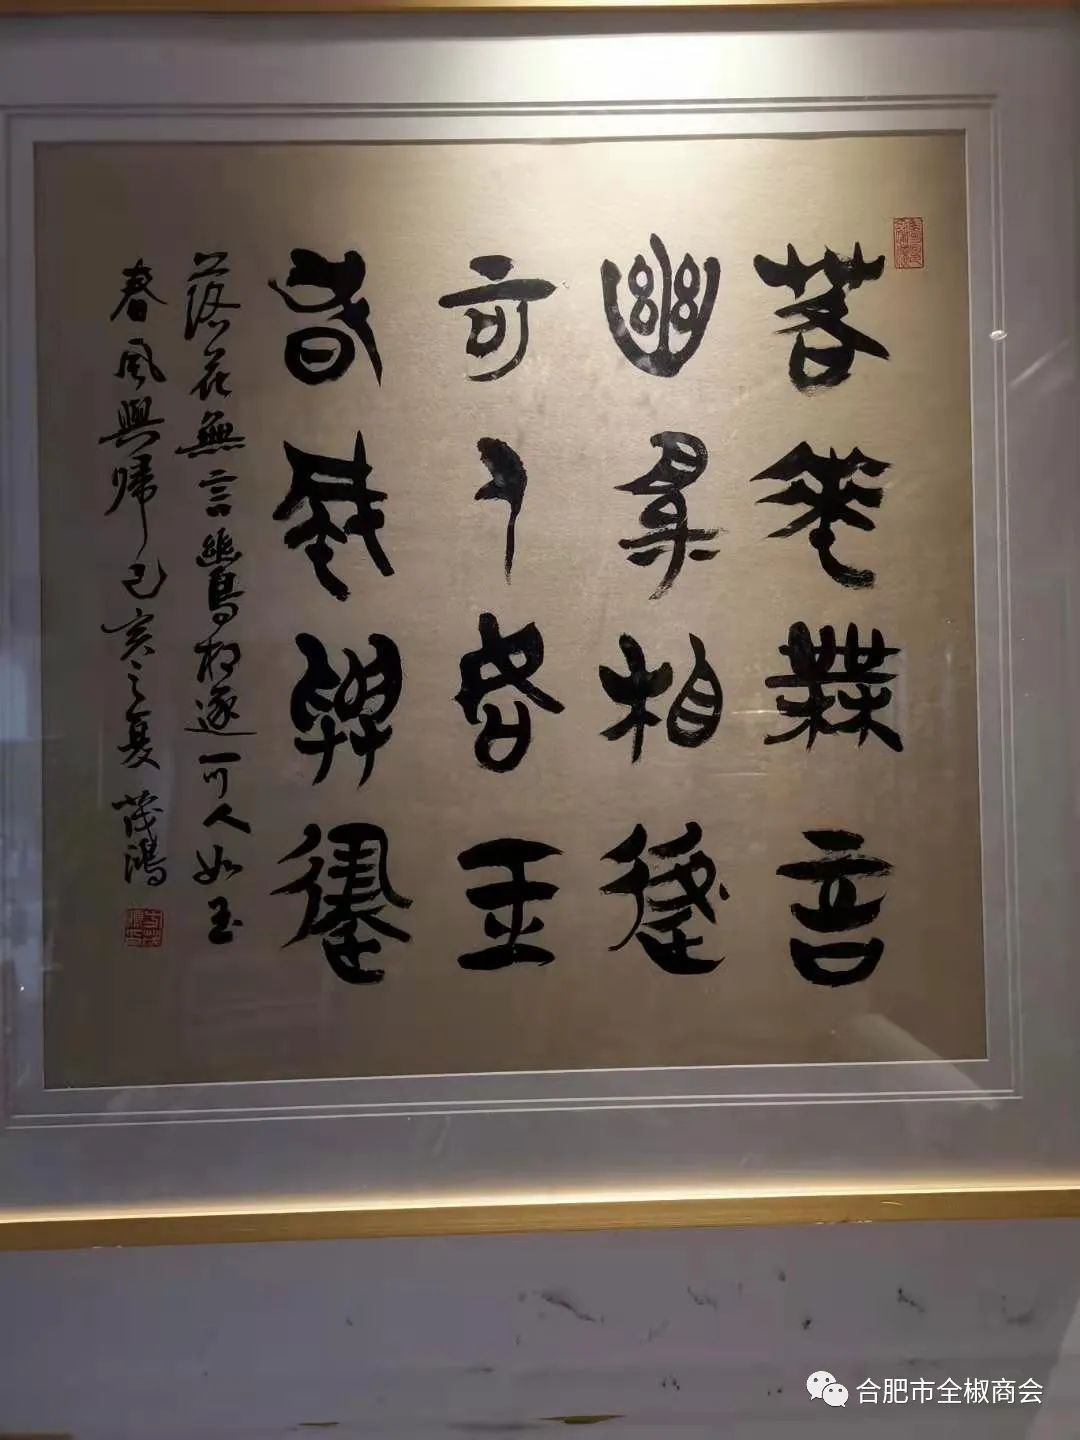 落花無言
幽鳥相逐
可人如玉
春風與歸
落花無言幽鳥相逐可人如玉
春風與歸己亥之夏茂鴻
合肥市全椒商会